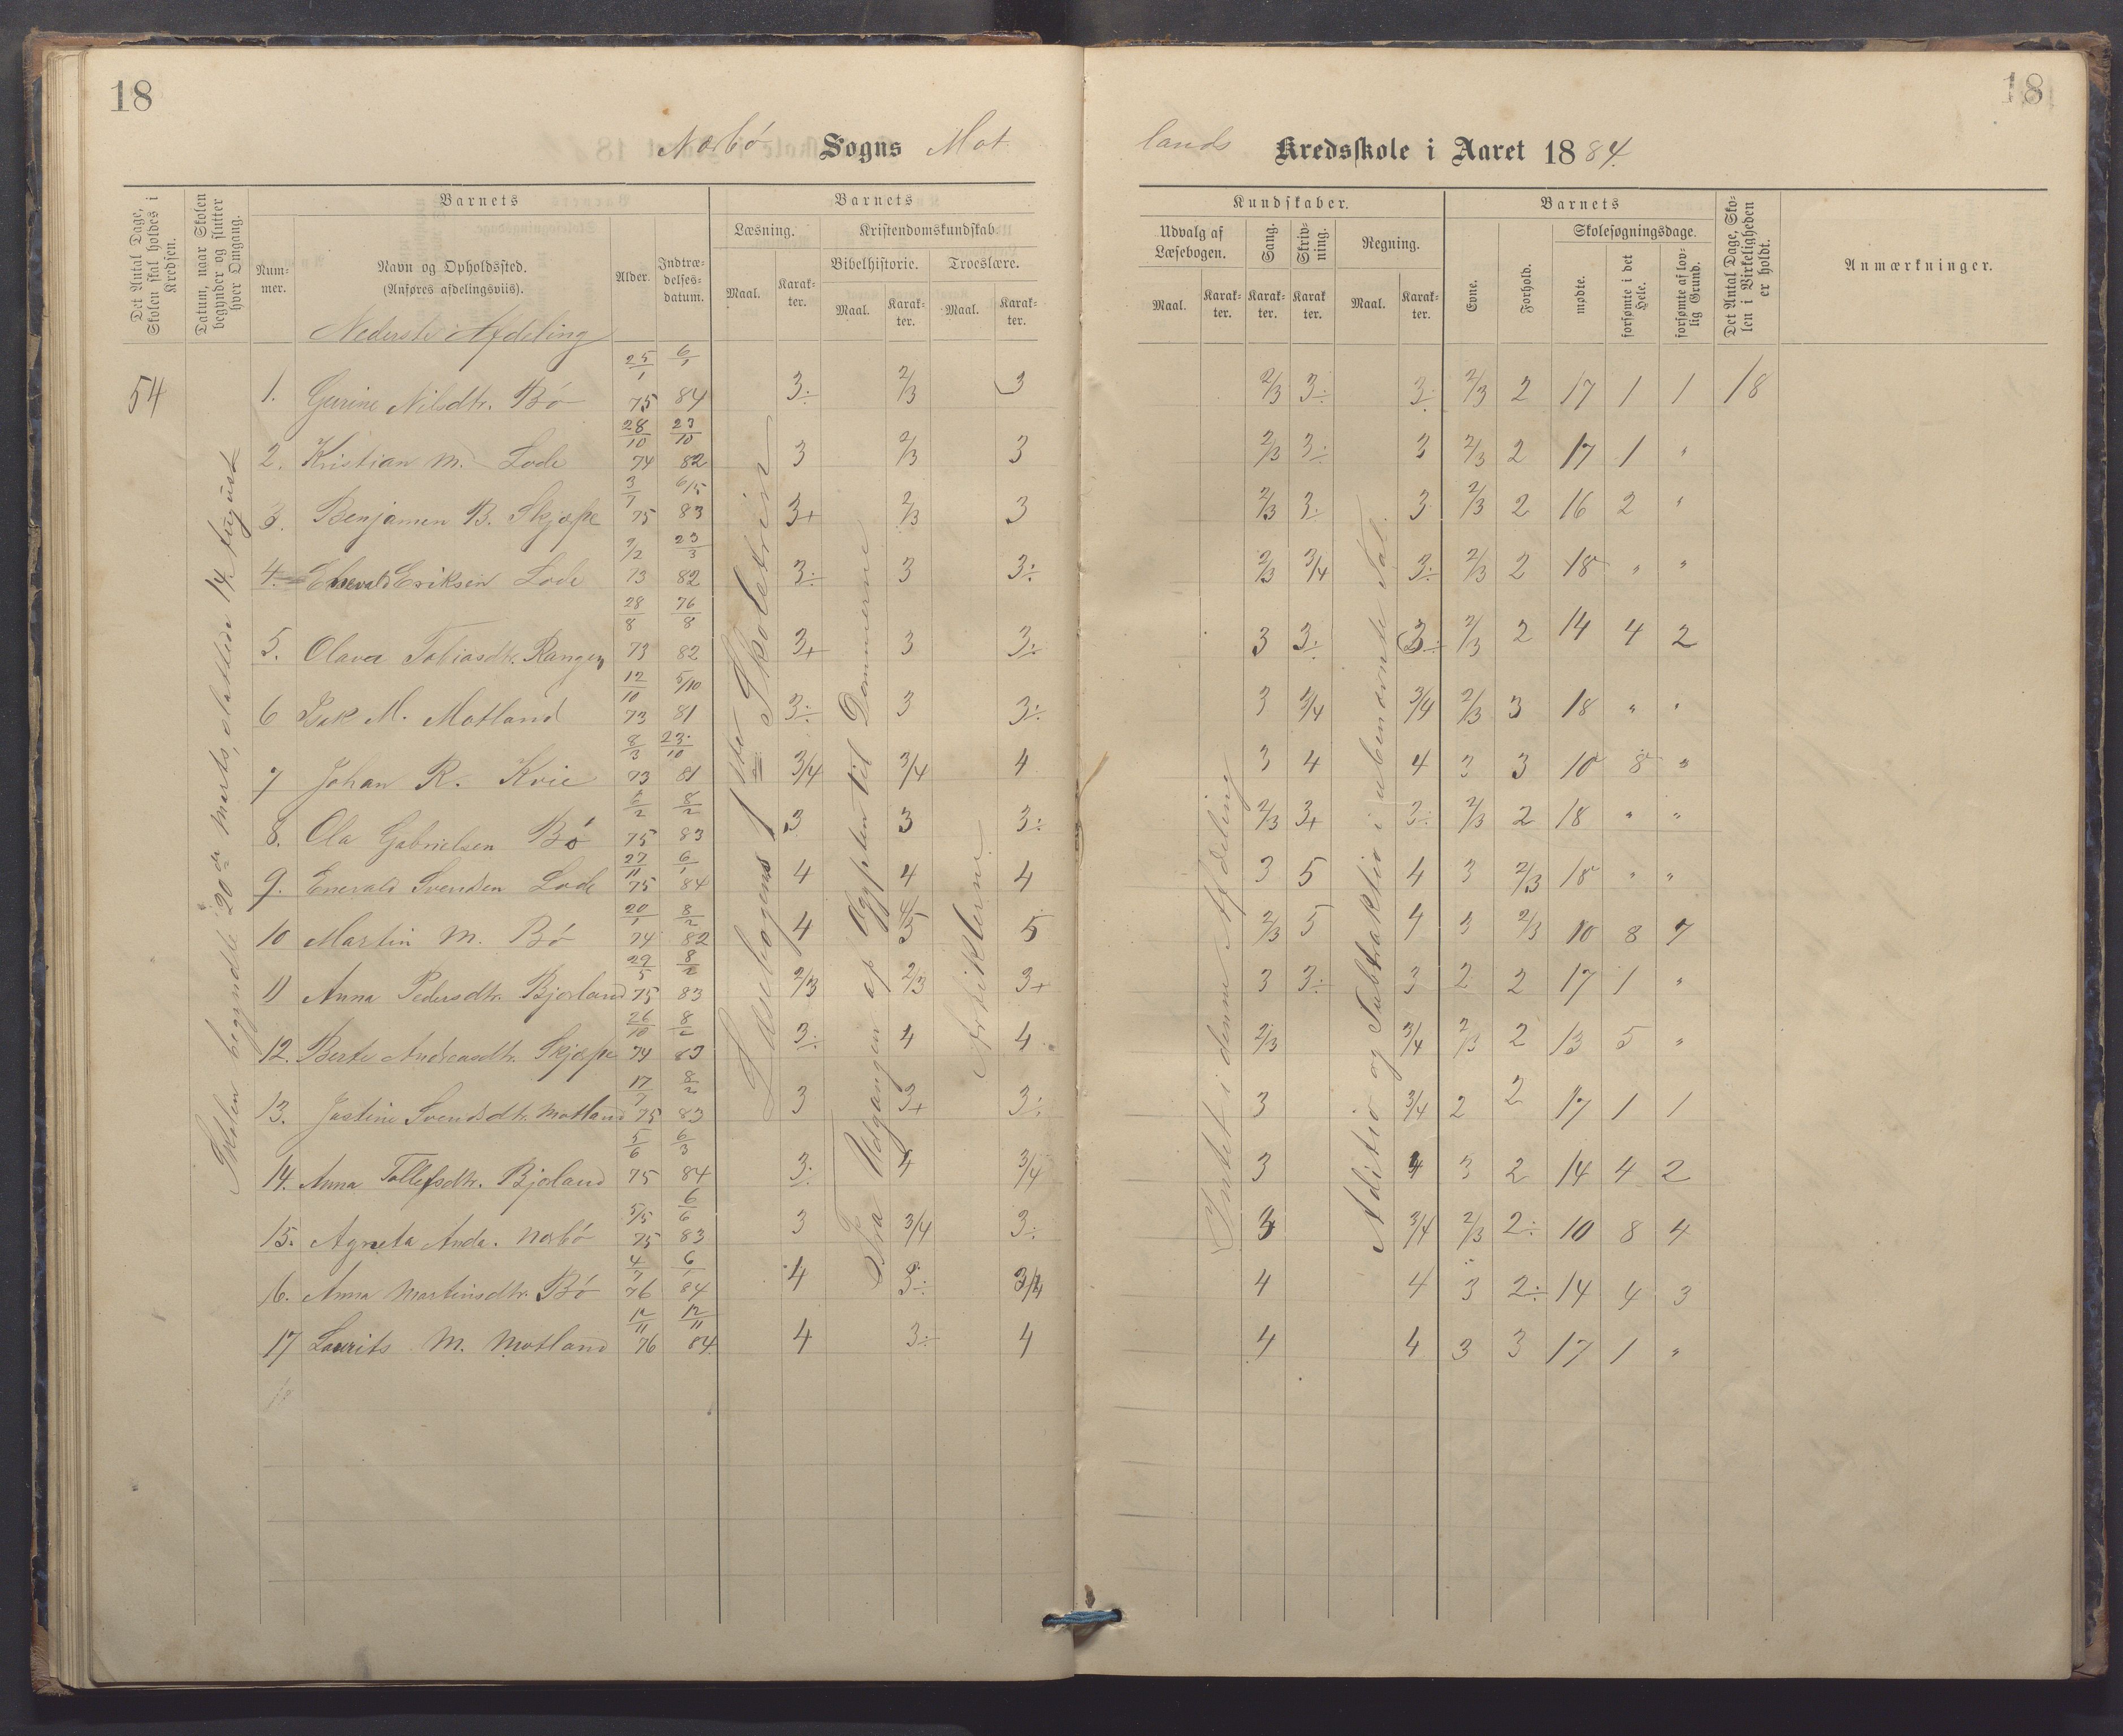 18
18
Nærbø Sogns Mot
lands Kredsskole i Aaret 1884.
Det Antal Dage, Skolen skal holdes i Kredsen.
Datum, naar Skolen begynder og slutter hver Omgang.
Barnets
Nummer.
Navn og Opholdssted.
(Anføres afdelingsviis).
Alder.
Indtrædelsesdatum.
Barnets
Læsning.
Maal.
Karakter.
Kristendomskundskab.
Bibelhistorie.
Maal.
Karakter.
Troeslære.
Maal.
Karakter.
Kundskaber.
Udvalg af Læsebogen.
Maal.
Karakter.
Sang.
Karakter.
Skrivning.
Karakter.
Regning.
Maal.
Karakter.
Barnets
Evne.
Forhold.
Skolesøgningsdage.
mødte.
forsømte i det Hele.
forsømte af lovlig Grund.
Det Antal Dage, Skolen i Virkeligheden er holdt.
Anmærkninger.
Nederste Afdeling
54
Skolen begyndte 20de Marts, sluttede 14. August
Læsebogens 1ste Skoletrin
Fra Udgangen af Ægypten til Dommerne
Artiklerne.
Intet i denne Afdeling
Aditio og Subtraktio i ubenævnte Tal.
1. Gurine Nilsdtr. Bø 25/1 75 6/1 84 3÷ 2/3 3 2/3 3÷ 3÷ 2/3 2 17 1 1 18
2. Kristian M. Lode 28/10 74 23/10 82 3 2/3 3 2/3 3÷ 3 2/3 2 17 1 "
3. Benjamen B. Skjæpe 3/7 75 6/5 83 3+ 2/3 3 2/3 3÷ 3 2/3 2 16 2 "
4. Enevald Eriksen Lode 2/2 73 23/3 82 3÷ 3 3÷ 2/3 3/4 3÷ 2/3 2 18 " "
5. Olava Tobiasdtr. Rangen 28/8 73 76/8 82 3+ 3 3÷ 3 3÷ 3÷ 2/3 2 14 4 2
6 Isak M. Motland 12/10 73 5/10 81 3÷ 3 3÷ 3 3/4 3/4 2/3 3 18 " "
7 Johan R. Kvie 8/3 73 23/10 81 3/4 3/4 4 3 4 4 3 3 10 8 "
8. Ola Gabrielsen Bø 6/2 75 8/2 83 3 3 3÷ 2/3 3+ 3÷ 2/3 2 18 " "
9. Enevald Svendsen Lode 27/11 75 6/1 84 4 4 4 3 5 4 3 2/3 18 " "
10 Martin M. Bø 20/1 74 8/2 82 4 4/5 5 2/3 5 4 3 2/3 10 8 7
11 Anna Pedersdtr. Bjorland 29/5 75 8/2 83 2/3 2/3 3+ 3 3÷ 3 2 2 17 1 "
12. Berte Andreasdtr. Skjæpe 26/10 74 8/2 83 3÷ 4 4 2/3 3/4 2/3 2 13 5 "
13. Justine Svendsdtr. Motland 17/7 75 8/2 83 3 3+ 3÷ 3 3/4 2 2 17 1 1
14. Anna Tollefsdtr. Bjorland 5/6 75 6/3 84 3÷ 4 3/4 3 4 3 2 14 4 2
15. Agneta Anda. Nærbø 5/5 75 6/6 83 3 3/4 3÷ 3 3/4 2/3 2÷ 10 8 4
16. Anna Martinsdtr. Bø 4/7 76 6/1 84 4 3÷ 3/4 4 4 3 2÷ 14 4 3
17 Laurits M. Motland 12/11 76 12/11 84. 4 3÷ 4 4 4 3 3 17 1 "